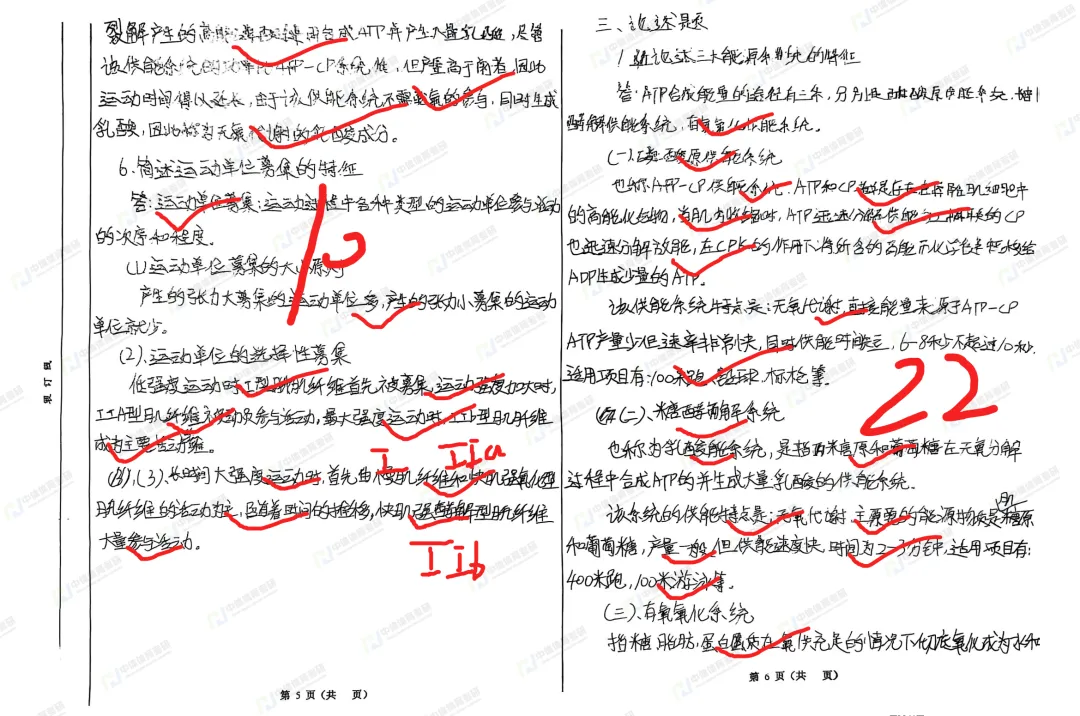 裂解产生的高能磷酸键用合成ATP并产生大量乳酸,尽管
该供能系统的功率比ATP-CP系统低,但产量高于前者,因此
运动时间得以延长,由于该供能系统不需要氧的参与,同时生成
乳酸,因此称为无氧代谢的乳酸成分。
6.简述运动单位募集的特征
答:运动单位募集:运动过程中各种类型的运动单位参与活动
的次序和程度。
(1)运动单位募集的大小原则
产生的张力大募集的运动单位多,产生的张力小募集的运动
单位就少。
(2).运动单位的选择性募集
低强度运动时I型肌肌纤维首先被募集,运动强度加大时,
IIA型肌纤维被动员参与运动,最大强度运动时,IIb型肌纤维
成为主要
(3).长时间大强度运动时,首先由慢肌纤维和快肌强氧化型
肌纤维的活动为主,随着时间的推移,快肌强酵解型肌纤维
大量参与运动。
10
I IIa
IIb
装订线
第 5 页(共 页)
三、论述题
1.试论述三大能源系统的特征
答:ATP合成能量的途径有三条,分别是磷酸原供能系统、糖
酵解供能系统,有氧氧化供能系统。
(一).磷酸原供能系统
也称ATP-CP供能系统.ATP和CP都是存在在骨骼肌细胞中
的高能化合物,当肌肉收缩时,ATP迅速分解供能,的CP
也迅速分解放能,在CPK的作用下将所含的高能转给
ADP生成少量的ATP。
该供能系统特点是:无氧代谢,直接能量来源于ATP-CP
ATP产量少但速率非常快,且时供能时间短,6-8秒不超过10秒.
适用项目有:100米跑、铅球、标枪等。
(二)、糖酵解系统
也称为乳酸能系统,是指肌糖原和葡萄糖在无氧分解
过程中合成ATP的并生成大量乳酸的供能系统。
该系统的供能特点是:无氧代谢,主要的能源物质是肌糖原
和葡萄糖,产量一般,但供能速度快,时间为2-3分钟,适用项目有:
400米跑,100米游泳等。
(三)、有氧氧化系统
指糖、脂肪、蛋白质在氧供充足的情况下彻底氧化成为水和
22
第 6 页(共 页)
中博体育考研